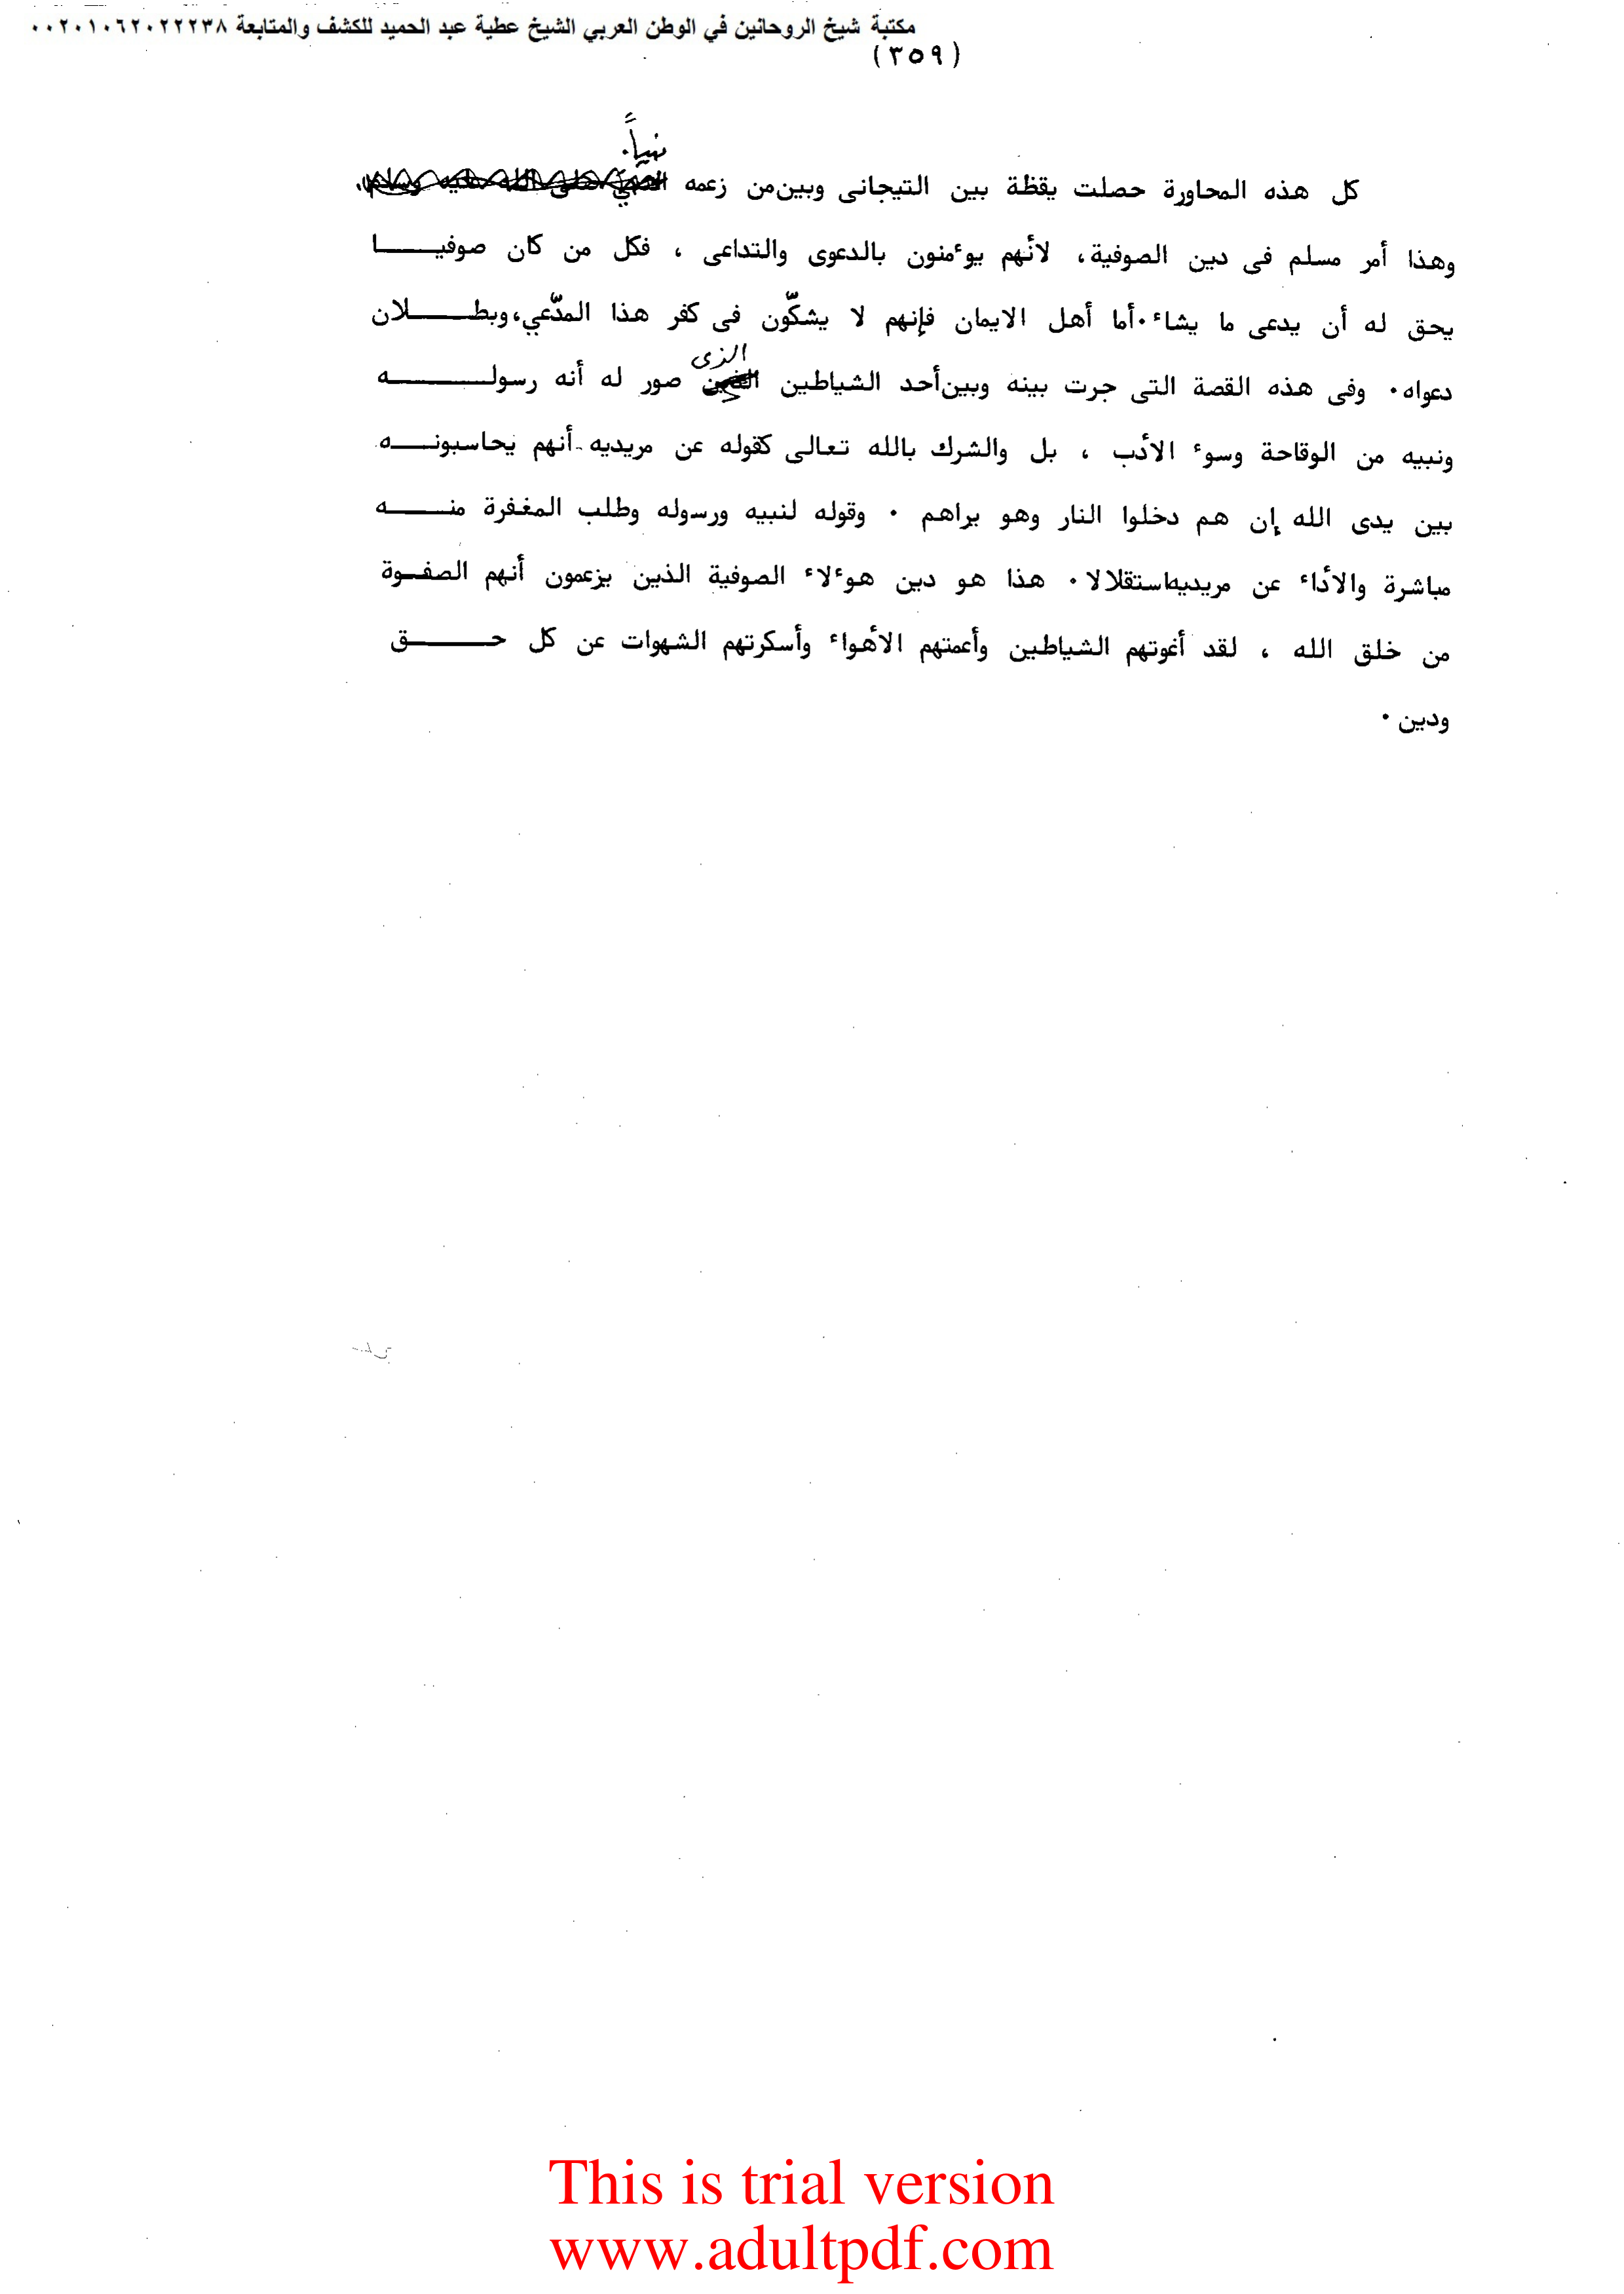 مكتبة شيخ الروحانين في الوطن العربي الشيخ عطية عبد الحميد للكشف والمتابعة ٠٠٢٠١٠٦٢٠٢٢٢٣٨
(٣٥٩)
نبياً.
كل هذه المحاورة حصلت يقظة بين التيجانى وبين من زعمه النبي صلى الله عليه وسلم.
وهذا أمر مسلم فى دين الصوفية، لأنهم يوءمنون بالدعوى والتداعى ، فكل من كان صوفيـــــا
يحق له أن يدعى ما يشاء٠أما أهل الايمان فإنهم لا يشكّون فى كفر هذا المدّعي،وبطـــــلان
الذى
دعواه٠ وفى هذه القصة التى جرت بينه وبين أحد الشياطين صور له أنه رسولـــــــه
ونبيه من الوقاحة وسوء الأدب ، بل والشرك بالله تعالى كقوله عن مريديه-أنهم يحاسبونـــه
بين يدى الله إن هم دخلوا النار وهو براهم ٠ وقوله لنبيه ورسوله وطلب المغفرة منـــــه
مباشرة والأداء عن مريديه استقلالا٠ هذا هو دين هوءلاء الصوفية الذين يزعمون أنهم الصفـوة
من خلق الله ، لقد أغوتهم الشياطين وأعمتهم الأهواء وأسكرتهم الشهوات عن كل حــــــق
ودين ٠
This is trial version
www.adultpdf.com